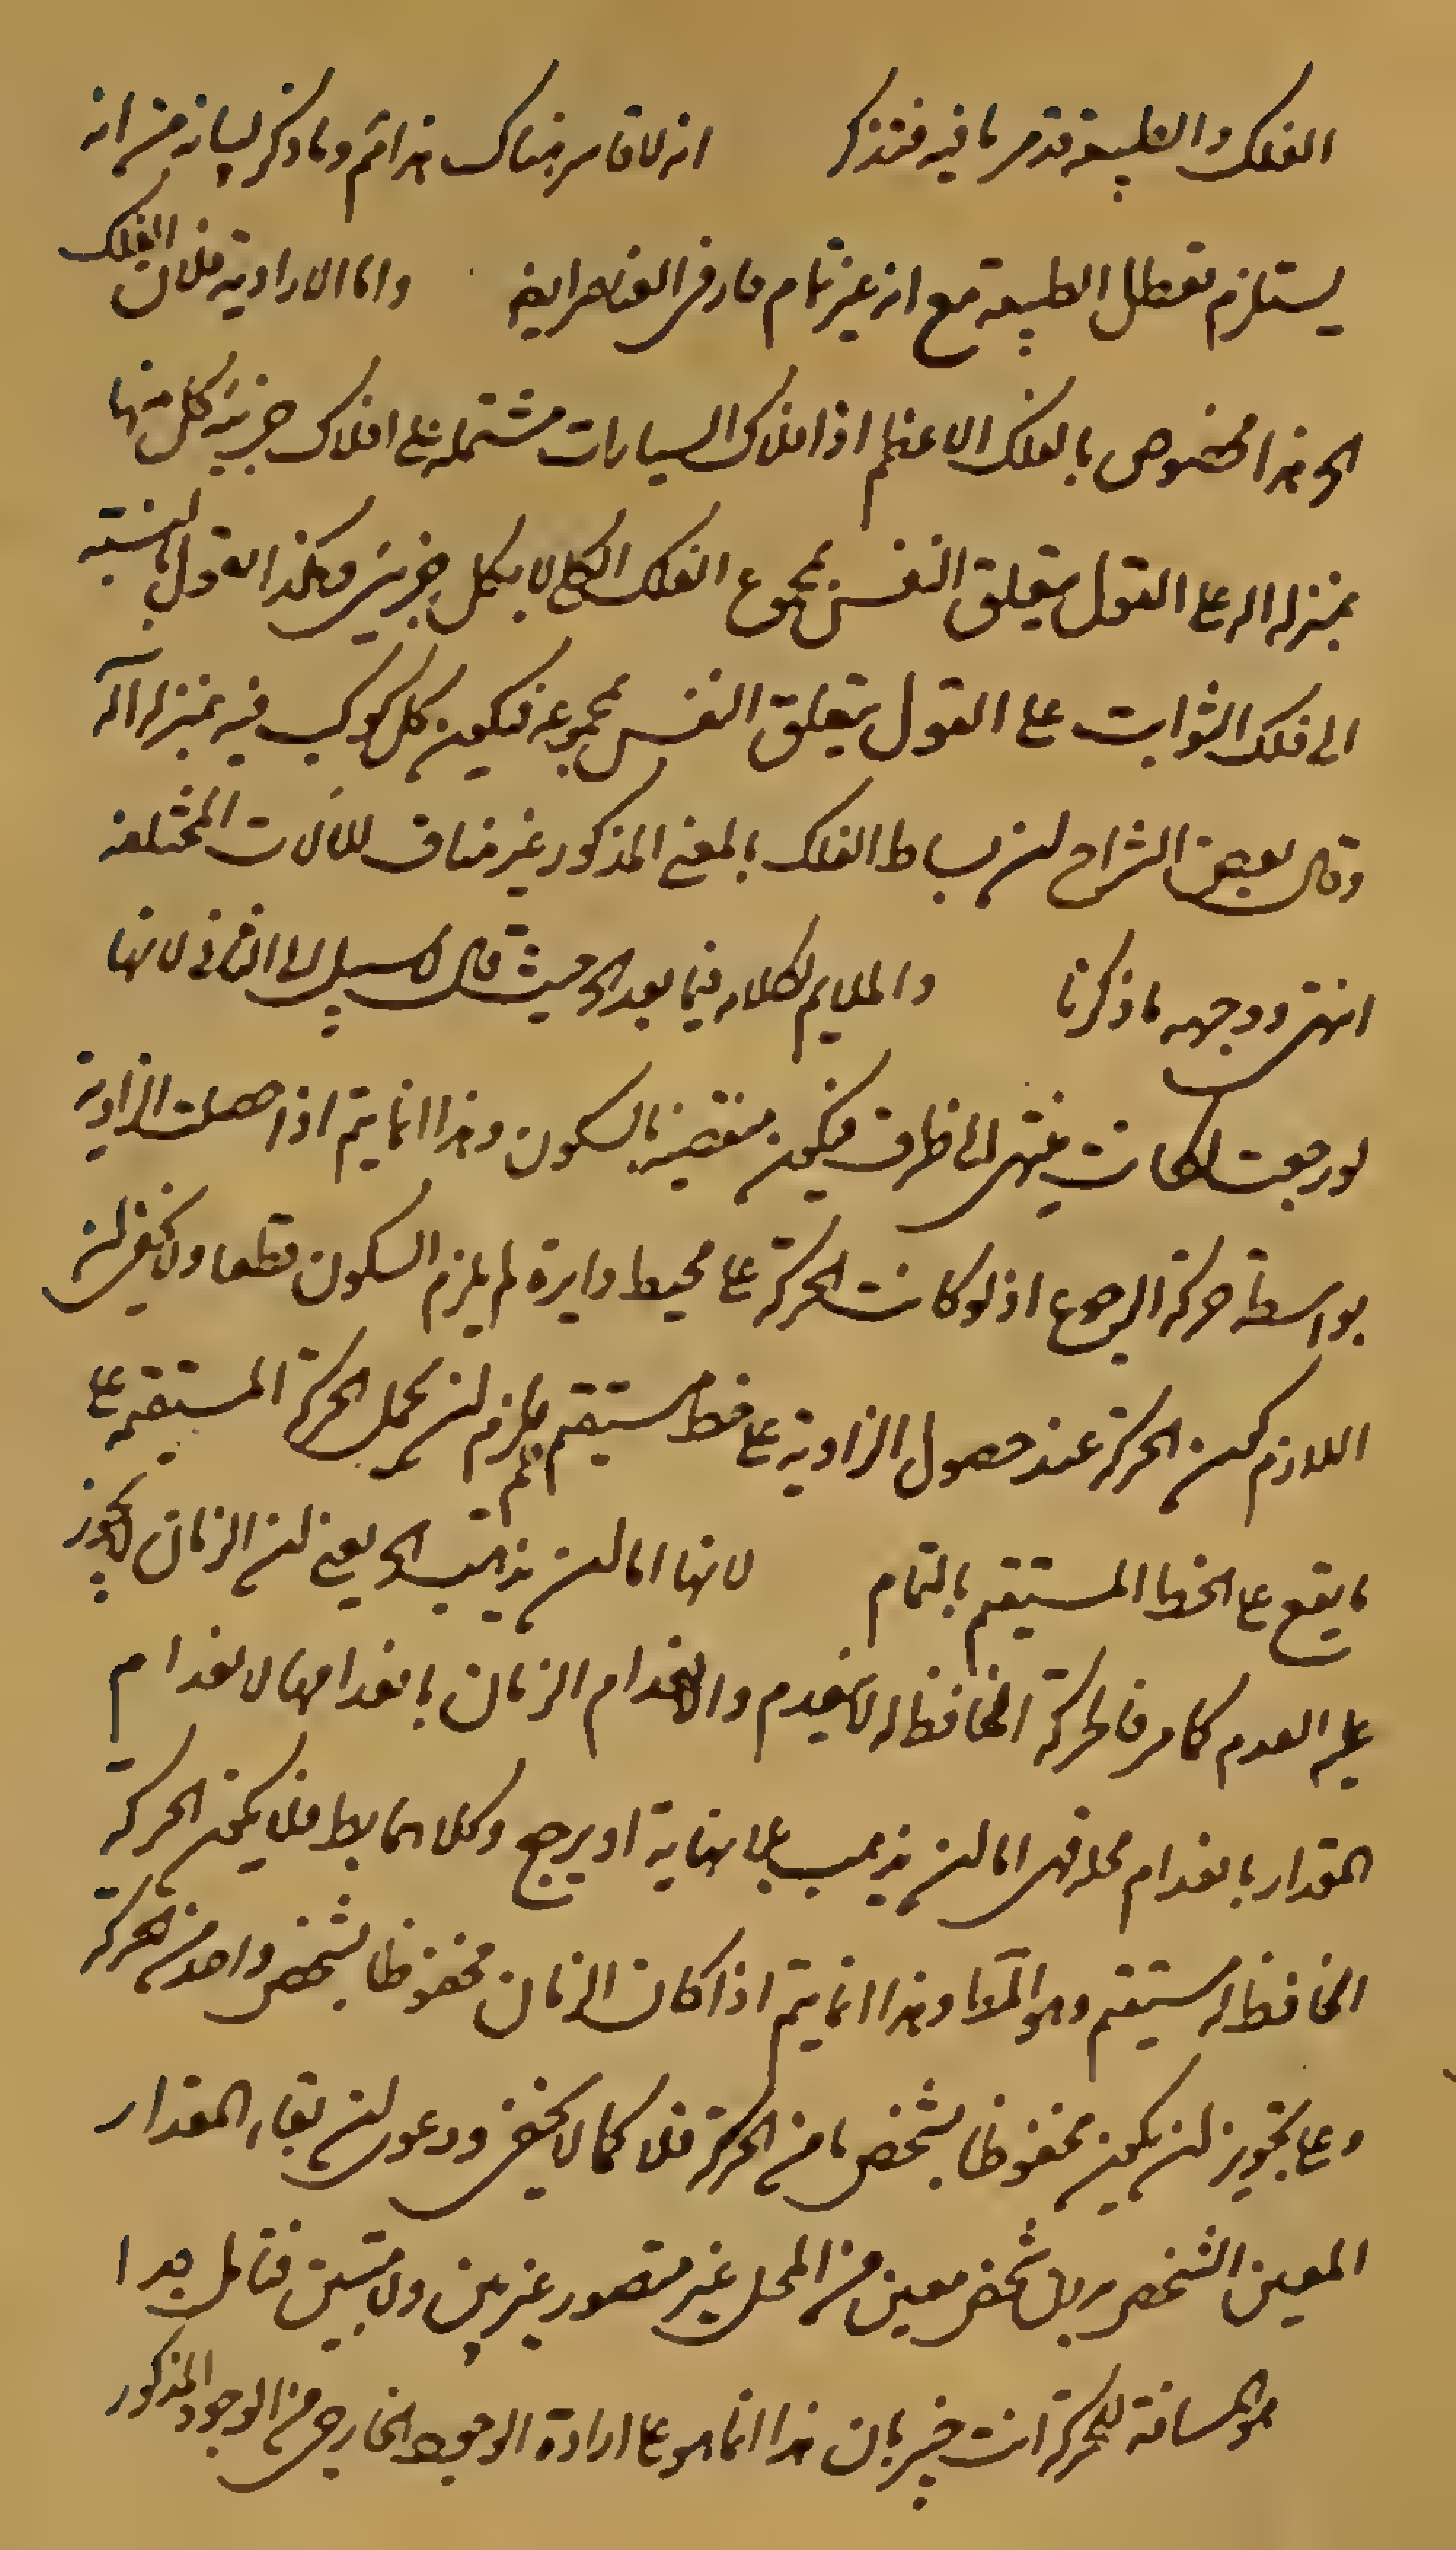 الفلك والطبيعة قد مر ما فيه فتذكر انه لا قاسر هناك هذا تم وما ذكر لبيانه من انه
يستلزم تعطل الطبيعة مع انه غير تام جار في العناصر ايضا واما الارادية فلان الفلك
الخ هذا مخصوص بالفلك الاعظم اذ افلاك السيارات مشتملة على افلاك جزئية كل منها
بمنزلة الة على القول بتعلق النفس بمجموع الفلك الكلي لا بكل جزئي وهكذا القول بالنسبة
الى فلك الثوابت على القول بتعلق النفس بمجموعه فيكون كل كوكب فيه بمنزلة الة
وقال بعض الشراح ان بساطة الفلك بالمعنى المذكور غير مناف للآلات المختلفة
انتهى ووجهه ما ذكرنا والملايم لكلامه فيما بعد الخ حيث قال لا سبيل الى الثاني لانها
لو رجعت لكانت منتهى الى طرف فيكون منقضية بالسكون وهذا انما يتم اذا حصلت الزاوية
بواسطة حركة الرجوع اذ لو كانت الحركة على محيط دايرة لم يلزم السكون قطعا ولا يخفى ان
اللازم كون الحركة عند حصول الزاوية على خط مستقيم فلم يلزم ان يحمل الحركة المستقيمة على
ما يقع على الخط المستقيم بالتمام لانها اما ان يذهب الخ يعني ان الزمان لا يجوز
عليه العدم كما مر فالحركة الحافظة له لا ينعدم والا لانعدام الزمان بانعدامها لانعدام
المقدار بانعدام محله فهي اما ان يذهب بلا نهاية او يرجع وكلاهما بط فلا يكون الحركة
الحافظة له مستقيم وهو المط وهذا انما يتم اذا كان الزمان محفوظا بشخص واحد من الحركة
وعلى تجويز ان يكون محفوظا بشخص ما من الحركة فلا كما لا يخفى ودعوى ان بقاء المقدار
المعين الشخصي بلا شخص معين من المحل غير متصور غير بين ولا مبين فتامل جدا
هو المسافة للحركة انت خبير بان هذا انما هو على ارادة الوجود الخارجي من الوجود المذكور